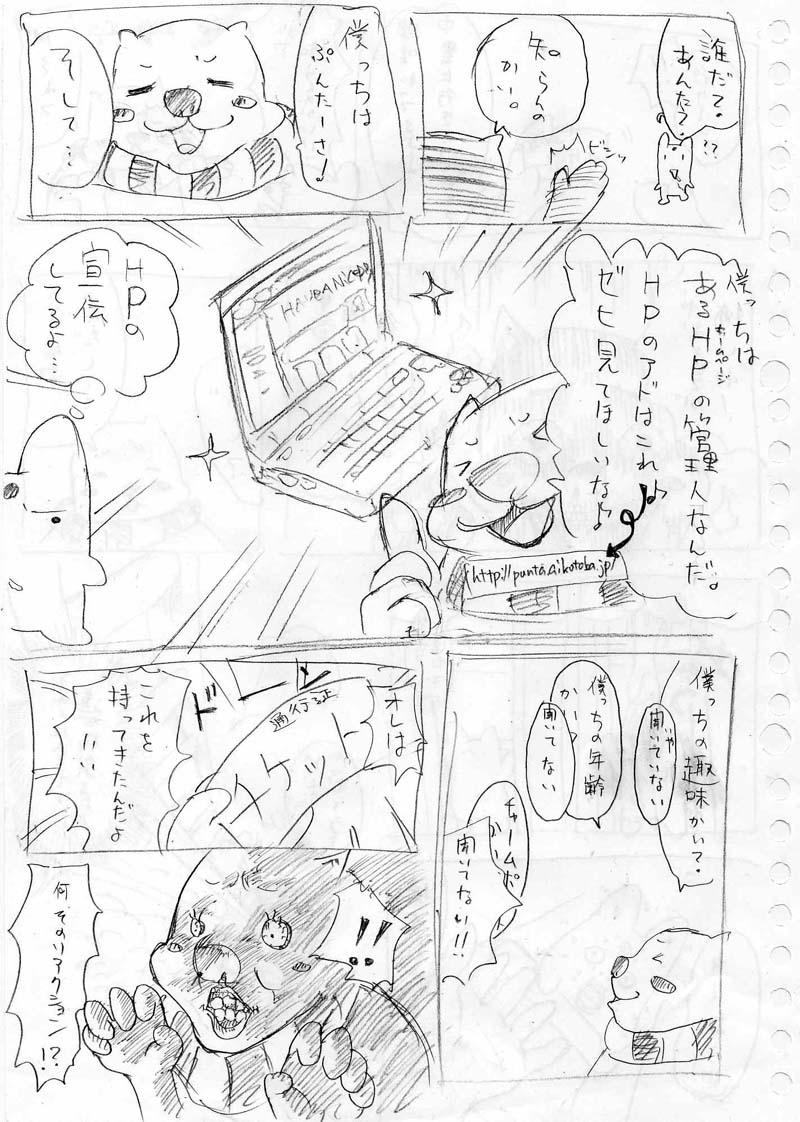 誰だて?
あんたて?
??
知らんの
かい。
ビシッ
僕っちは
ぷんたーさ!
そして…
僕っちは
あるHPの管理人なんだ。
ホームページ
HPのアドはこれ♪
ゼヒ見てほしいな♪
http://punta.aikotoba.jp/
HPの
宣伝
してるよ…
僕っちの趣味かい?
いや
聞いていない
僕っちの年齢
かい?
聞いてない
チャームポ
聞いてない!!
オレは
通行証
チケット
ドーン
これを
持ってきたんだよ
!!
何そのリアクション!?